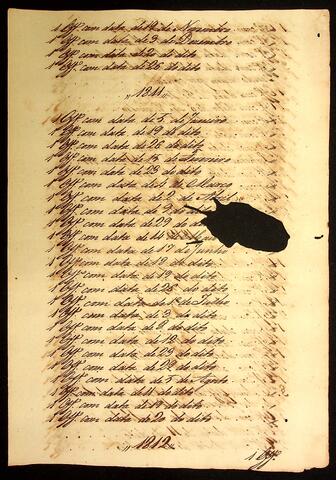 1 Offº com data de 12 de Novembro
1 Offº com data de 3 de Dezembro
1 Offº com data de 21 de dito
1 Offº com data de 26 de dito
"1811"
1 Offº com data de 5 de Janeiro
1 Offº com data de 19 de dito
1 Offº com data de 26 de dito
1 Offº com data de 15 de Fevereiro
1 Offº com data de 23 de dito
1 Offº com data de 4 de Março
1 Offº com data de 2 de
1 Offº com data de
1 Offº com data de 29
1 Offº com data de
1 Offº com data de 17 de Junho
1 Offº com data de 19 de dito
1 Offº com data de 19 de dito
1 Offº com data de 25 de dito
1 Offº com data de 1º de Julho
1 Offº com data de 3 de dito
1 Offº com data de 9 de dito
1 Offº com data de 12 de dito
1 Offº com data de 23 de dito
1 Offº com data de 22 de dito
1 Offº com data de 5 de Agosto
1 Offº com data de de dito
1 Offº com data de de dito
1 Offº com data de 20 de dito
"1812"
1 Offº